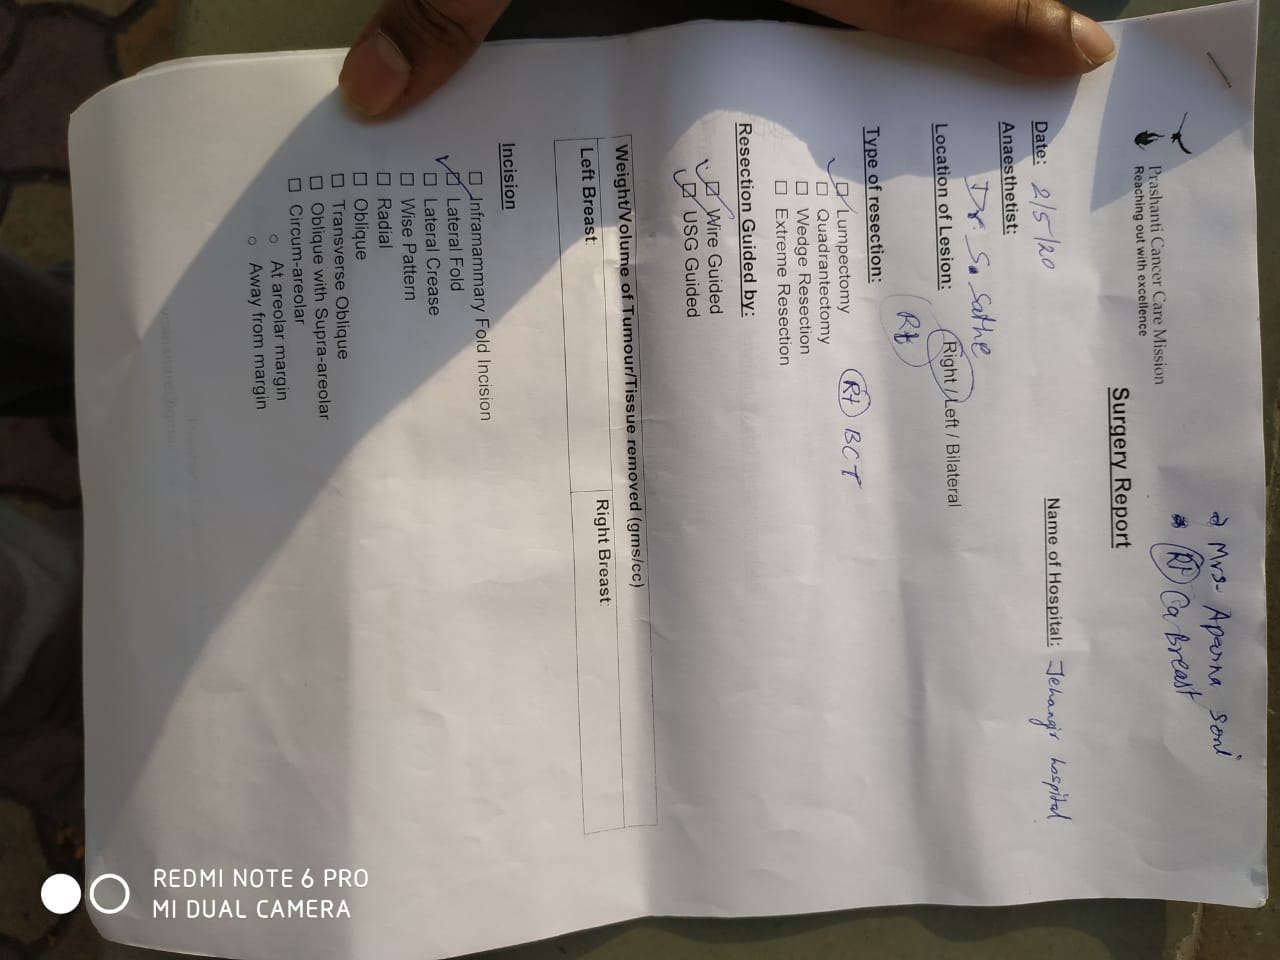 Mrs. Aparna Soni
Rt Ca Breast
Prashanti Cancer Care Mission
Reaching out with excellence
Surgery Report
Date: 2/5/20
Name of Hospital: Jehangir hospital
Anaesthetist: Dr. S. Sathe
Location of Lesion: Right / Left / Bilateral
Rt
Type of resection:
☑ Lumpectomy Rt BCT
☐ Quadrantectomy
☐ Wedge Resection
☐ Extreme Resection
Resection Guided by:
☑ Wire Guided
☑ USG Guided
Weight/Volume of Tumour/Tissue removed (gms/cc)
Left Breast: Right Breast:
Incision
☐ Inframammary Fold Incision
☑ Lateral Fold
☐ Lateral Crease
☐ Wise Pattern
☐ Radial
☐ Oblique
☐ Transverse Oblique
☐ Oblique with Supra-areolar
☐ Circum-areolar
○ At areolar margin
○ Away from margin
REDMI NOTE 6 PRO
MI DUAL CAMERA